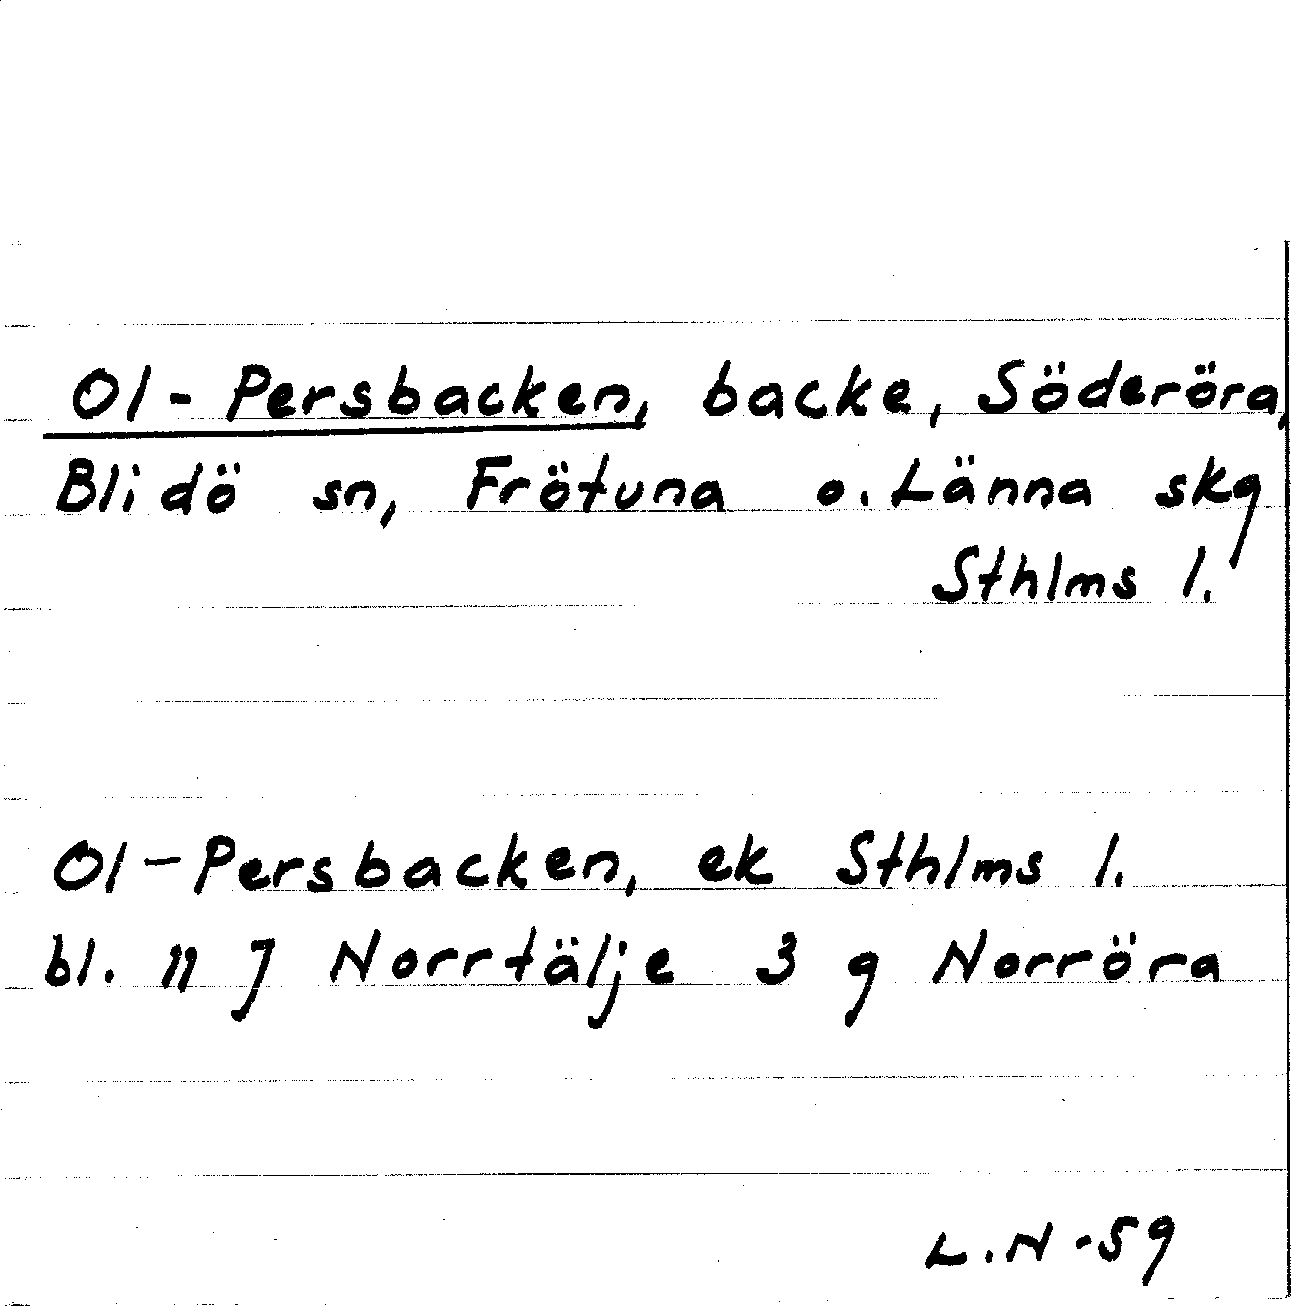 Ol-Persbacken, backe, Söderöra,
Blidö sn, Frötuna o. Länna skg
Sthlms l.
Ol-Persbacken, ek Sthlms l.
bl. 11 J Norrtälje 3 g Norröra
L.N-59